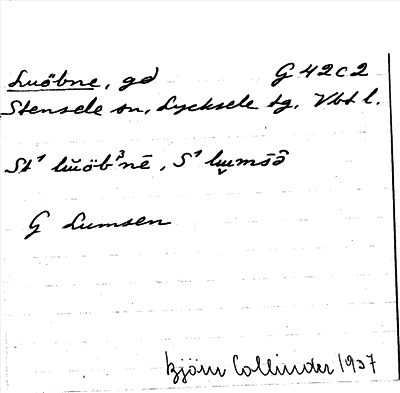 Luöbne, gd G 42c2
Stensele sn, Lycksele tg, Vbt l.
St¹ lŭöb³nē, S¹
G Lumsen
Björn Collinder 1937